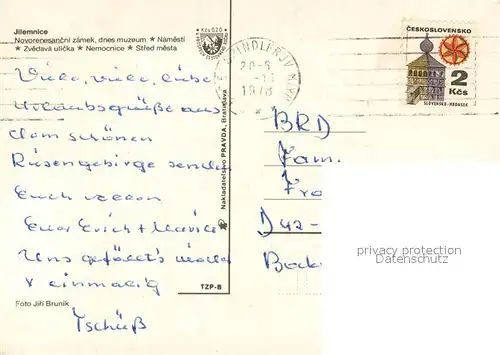 Jilemnice
Novorenesanční zámek, dnes muzeum ★ Náměstí
★ Zvědavá ulička ★ Nemocnice ★ Střed města
Kčs 0,20
Viele, viele, liebe
Urlaubsgrüße aus
dem schönen
Riesengebirge senden
Euch
Euer Erich +
Uns gefällt's
einmalig
Tschüß
Foto Jiří Bruník
TZP-B
Nakladatelstvo PRAVDA, Bratislava
ŠPINDLERŮV MLÝN
20-6
1978
ČESKOSLOVENSKO
2
Kčs
SLOVENSKO-HRONSEK
BRD
Fam.
Fro
D 42-
Bock
privacy protection
Datenschutz